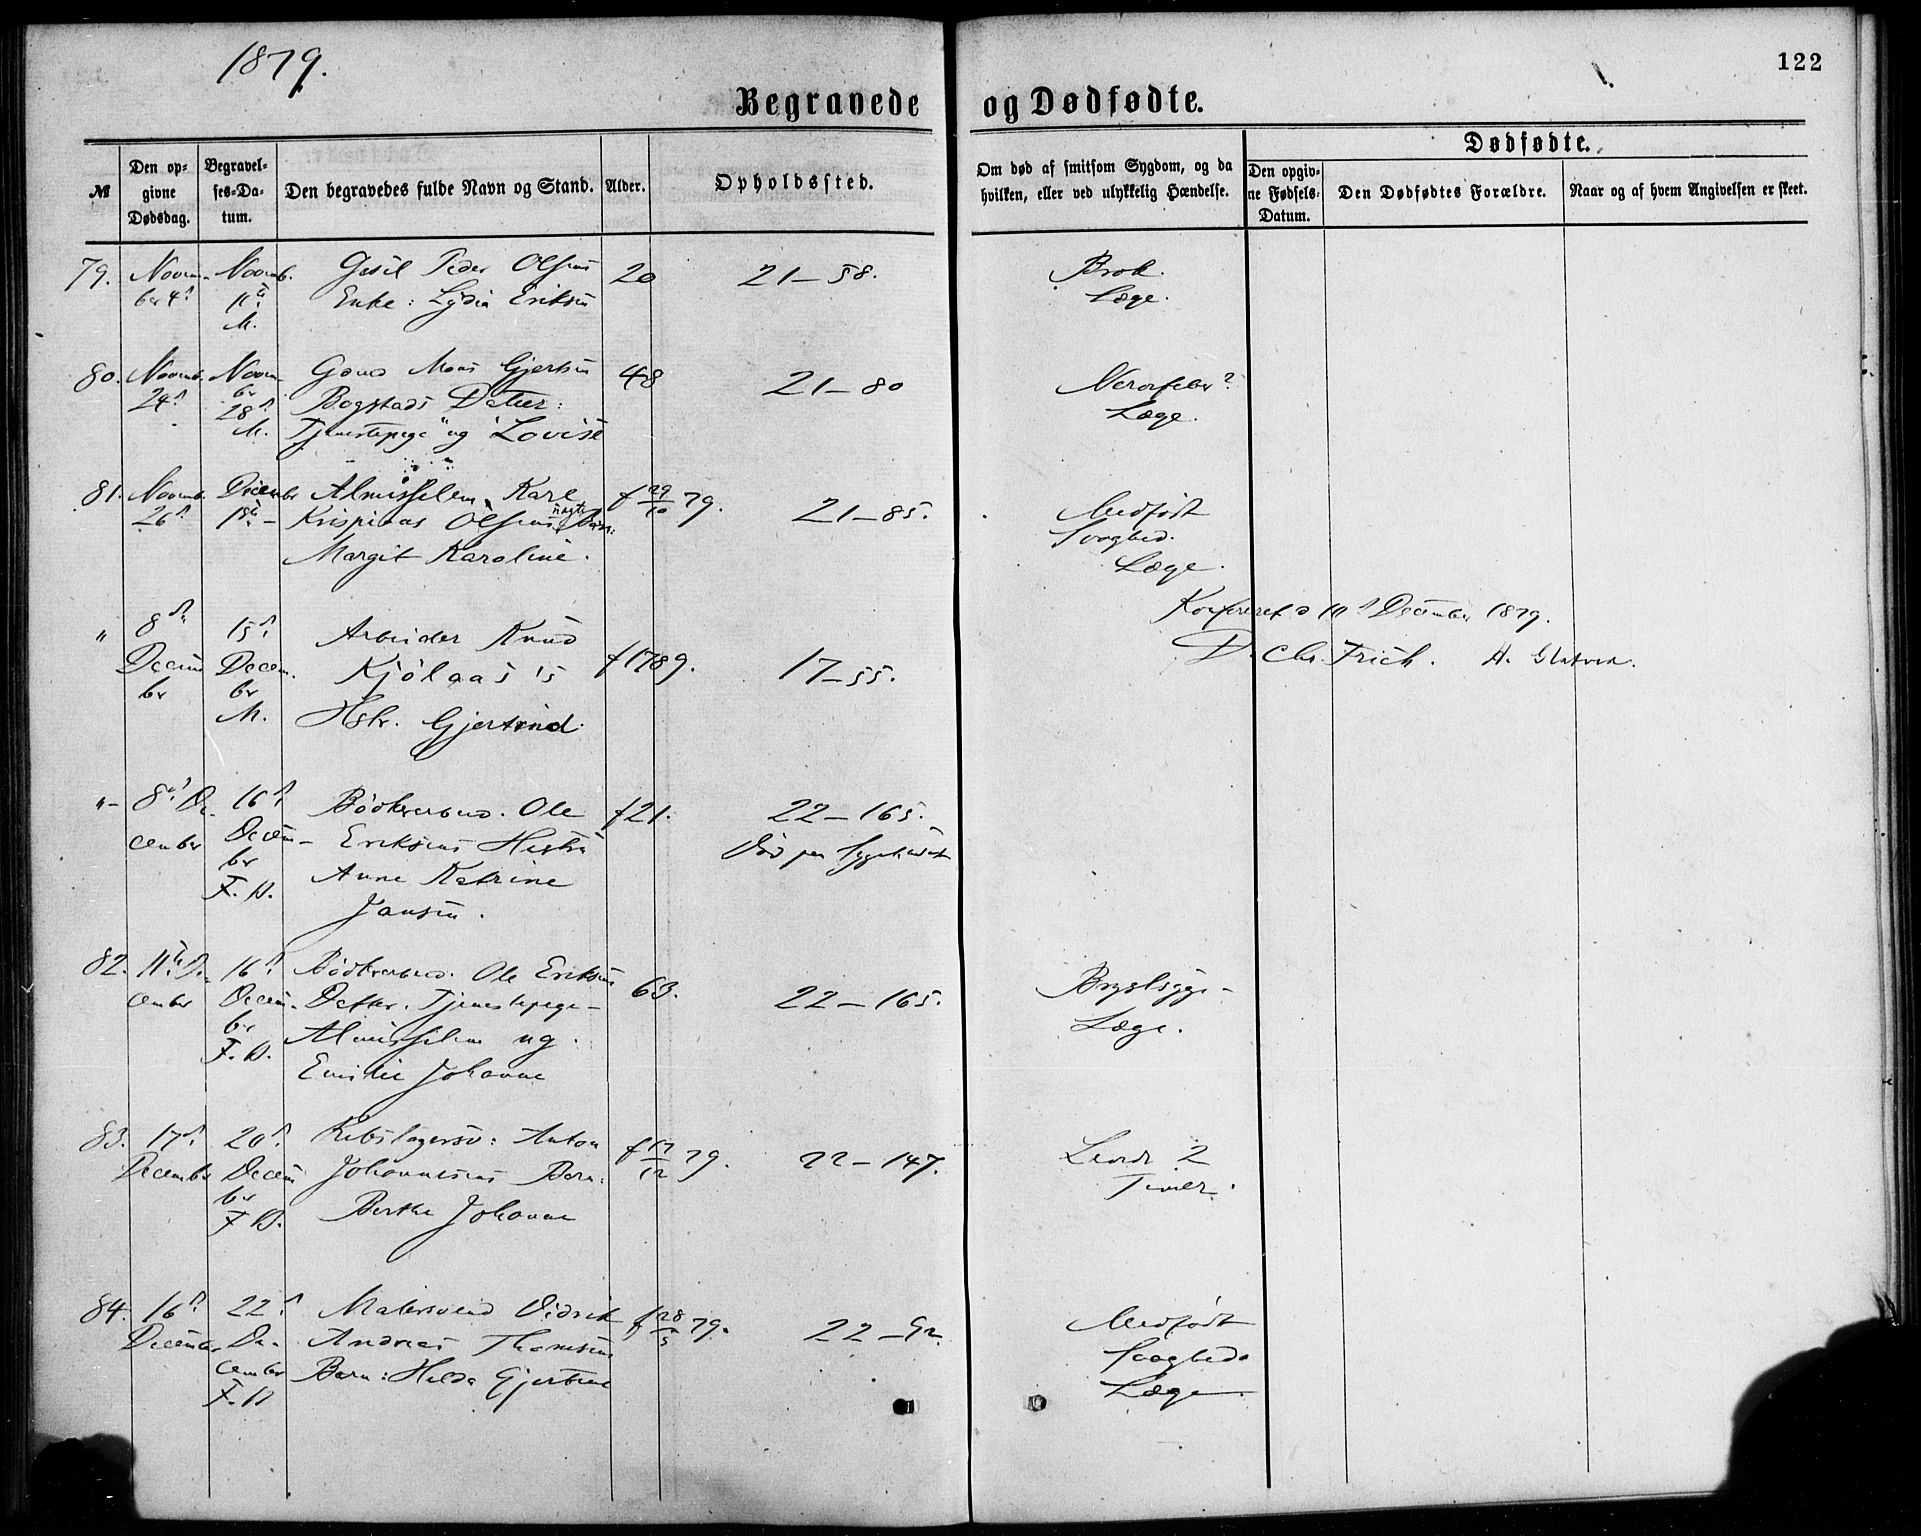 1879.
122
Begravede og Dødfødte.
№
Den op-
givne
Dødsdag.
Begravel-
ses-Da-
tum.
Den begravedes fulde Navn og Stand.
Alder.
Opholdssted.
Om død af smitsom Sygdom, og da
hvilken, eller ved ulykkelig Hændelse.
Dødfødte.
Den opgiv-
ne Fødsels-
Datum.
Den Dødfødtes Forældre.
Naar og af hvem Angivelsen er skeet.
79. Novem-
ber 4d
Novemb.
11te
M.
Peder Olsens
Enke: Lydia Eriksen
20
21–58.
Brok.
Læge.
80. Novemb.
24d
Novem-
ber
28d
M.
Mons Gjertsen
Bogstads Datter:
Tjenestepige ug Lovise
48
21–80
Nervefeber?
Læge.
81. Novemb.
26d
December
1ste
Almisselem Karl
Krispinas Olsens uægte Barn:
Margit Karoline.
f 29/10 79.
21–85.
Medfødt
Svaghed.
Læge.
" 8de
Decem
ber
15d
Decem.
ber
M.
Arbeider Knud
Kjølaas's
Hstr. Gjertrud
f 1789.
17–55.
Konfereret d 11d December 1879.
D. Chr. Frich. A.
"– 8de De-
cember
16d
Decem-
ber
F. D.
Bødkersvd. Ole
Eriksens Hustru
Anne Katrine
Jansen.
f 21.
22–165.
Død paa Sygehuset
82. 11te De-
cember
16d
Decem-
ber
F. D.
Bødkersvd. Ole Eriksens
Datter. Tjenestepige–
Almisselem ug.
Emilie Johanne
63.
22–165.
Brystsyge–
Læge.
83. 17de
December
20d
Decem
ber
F D.
Rebslagersv: Anton
Johannesens Barn:
Berthe Johanne
f 17/12 79.
22–147.
Levede 2
Timer.
84. 16d
December
22d
De-
cember
F. D
Malersvend Didrik
Andreas Thomsens
Barn: Hilda Gjertine
f 28/5 79.
22–92
Medfødt
Svaghed
Læge.